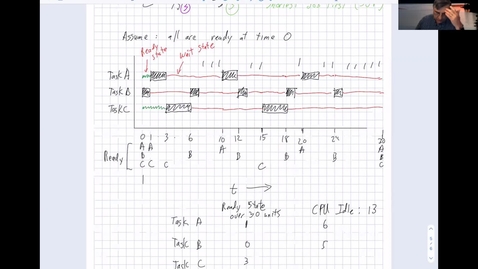 Assume : all are ready at time 0
Ready state
wait state
Task A
Task B
Task C
0 1 3 6 10 12 15 18 20 24
Ready
A A A A A
B B B B B B
C C C C C
t
Ready State
over 30 units
CPU Idle : 13
Task A 1 6
Task B 0 5
Task C 3